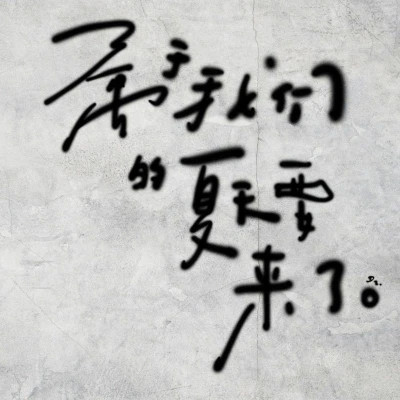 属于我们
的夏天要
来了。